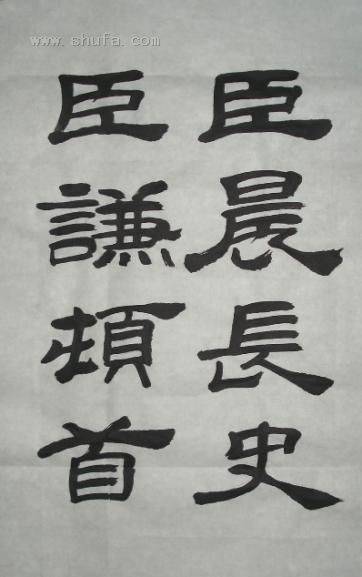 臣晨長史
臣謙頓首
www.shufa.com